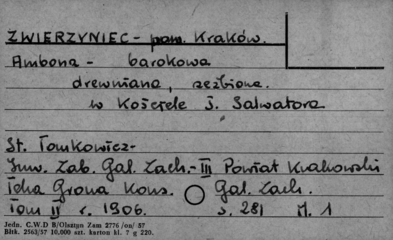 ZWIERZYNIEC - pow. Kraków.
Ambona - barokowa
drewniana, rzeźbiona.
w Kościele Ś. Salwatora
St. Tomkowicz -
Inw. Zab. Gal. Zach. - III Powiat Krakowski
Teka Grona Kons. Gal. Zach.
Tom II r. 1906. s. 281 Il. 1
Jedn. C.W.D B/Olsztyn Zam 2776 /on/ 57
Błtk. 2563/57 10.000 szt. karton kl. 7 g 220.